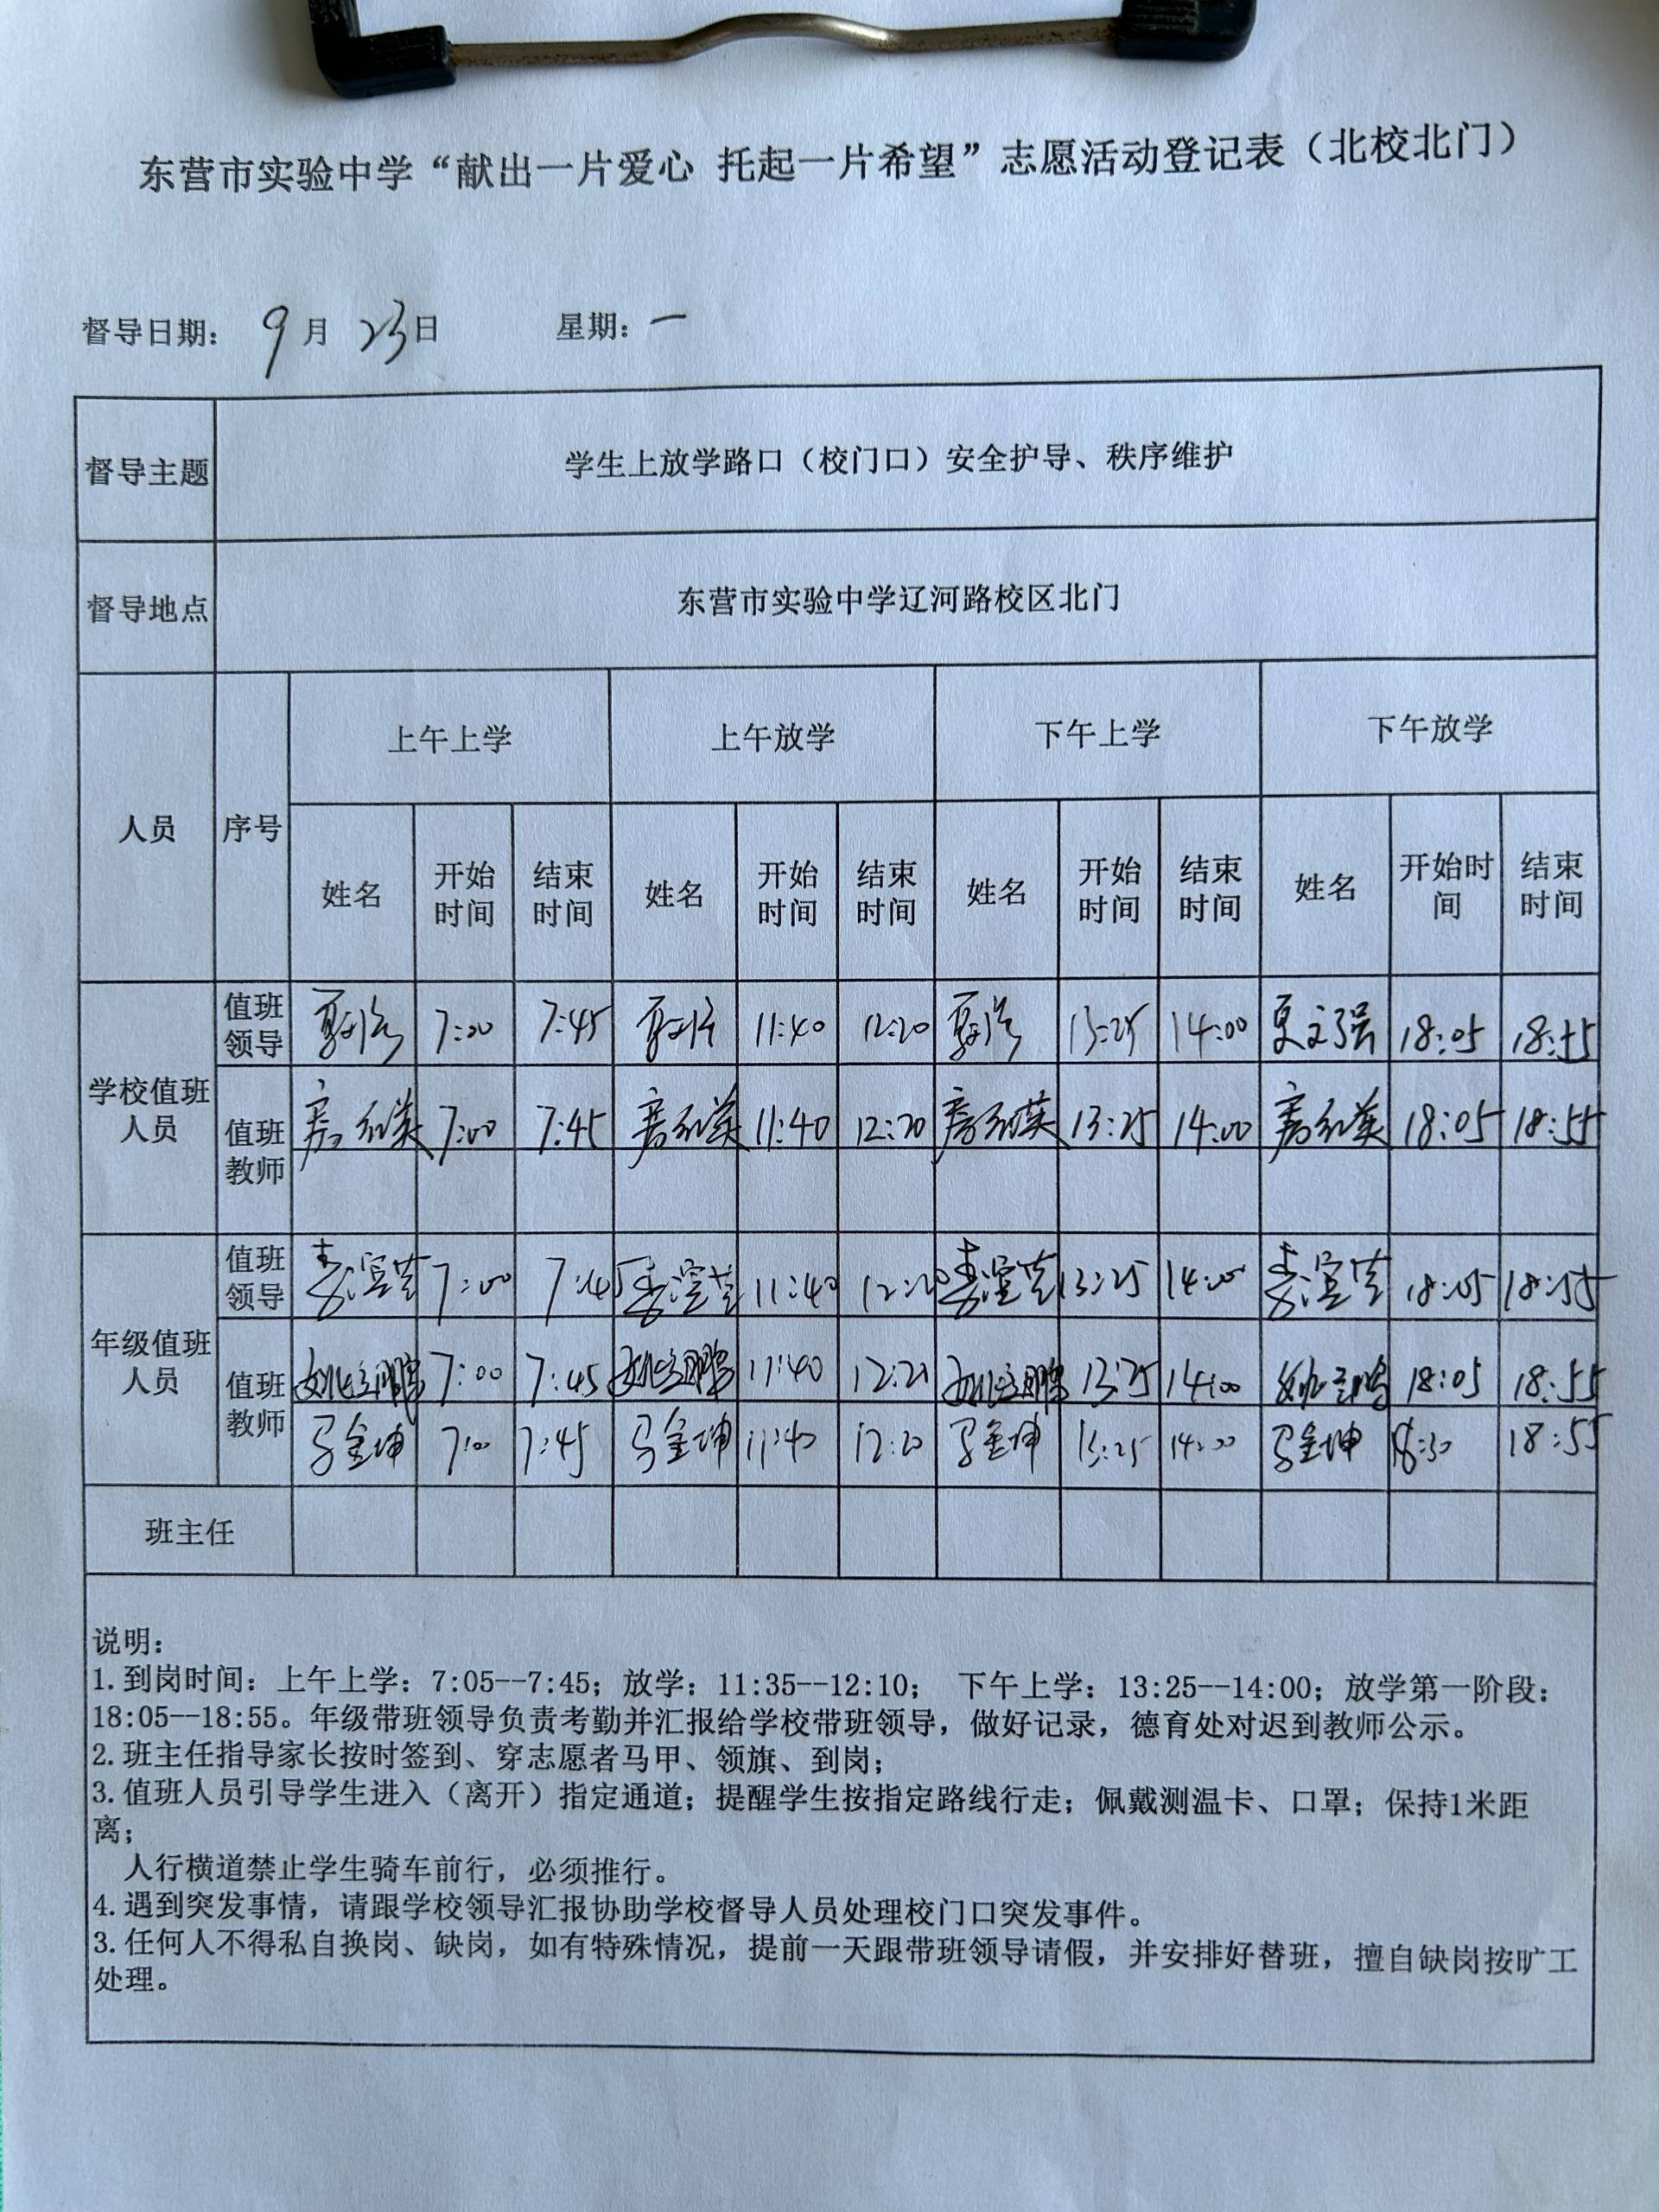 东营市实验中学“献出一片爱心 托起一片希望”志愿活动登记表（北校北门）
督导日期： 9 月 23 日 星期：一
督导主题 学生上放学路口（校门口）安全护导、秩序维护
督导地点 东营市实验中学辽河路校区北门
人员 序号 上午上学 上午放学 下午上学 下午放学
姓名 开始时间 结束时间 姓名 开始时间 结束时间 姓名 开始时间 结束时间 姓名 开始时间 结束时间
学校值班人员
值班领导 7:00 7:45 11:40 12:20 13:25 14:00 夏文强 18:05 18:55
值班教师 7:00 7:45 11:40 12:20 13:25 14:00 18:05 18:55
年级值班人员
值班领导 7:00 7:45 11:40 12:20 13:25 14:00 18:05 18:55
值班教师 姚立鹏 7:00 7:45 姚立鹏 11:40 12:20 姚立鹏 13:25 14:00 18:05 18:55
马金坤 7:00 7:45 马金坤 11:40 12:20 马金坤 13:25 14:00 马金坤 18:55
班主任
说明：
1.到岗时间：上午上学：7:05--7:45；放学：11:35--12:10； 下午上学：13:25--14:00；放学第一阶段：
18:05--18:55。年级带班领导负责考勤并汇报给学校带班领导，做好记录，德育处对迟到教师公示。
2.班主任指导家长按时签到、穿志愿者马甲、领旗、到岗；
3.值班人员引导学生进入（离开）指定通道；提醒学生按指定路线行走；佩戴测温卡、口罩；保持1米距
离；
人行横道禁止学生骑车前行，必须推行。
4.遇到突发事情，请跟学校领导汇报协助学校督导人员处理校门口突发事件。
3.任何人不得私自换岗、缺岗，如有特殊情况，提前一天跟带班领导请假，并安排好替班，擅自缺岗按旷工
处理。